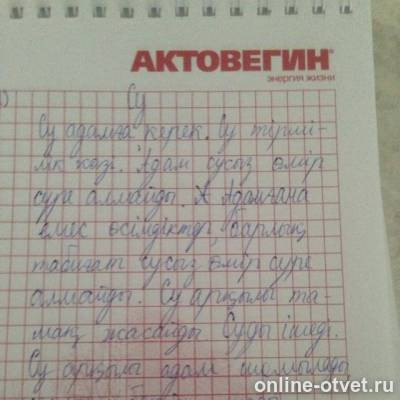 АКТОВЕГИН®
энергия жизни
Су
Су адамға керек. Су тірші-
лік көзі. Адам сусыз өмір
сүре алмайды. Адамғана
емес өсімдіктер, барлық
табиғат сусыз өмір сүре
алмайды. Су арқылы та-
мақ жасайды. Суды ішеді.
Су арқылы адам шомылады
online-otvet.ru